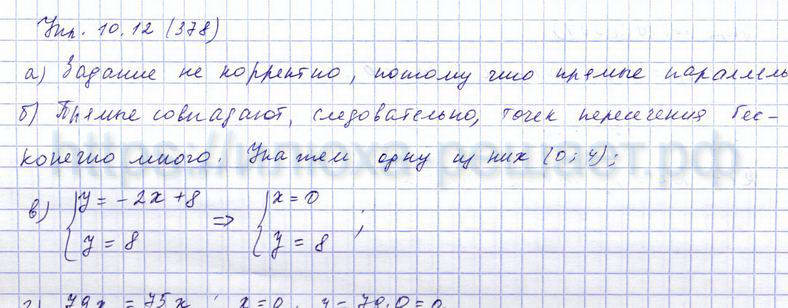 Упр. 10.12 (378)
а) Задание не корректно, потому что прямые параллель
б) Прямые совпадают, следовательно, точек пересечения бес-
конечно много. Укажем одну из них (0; 4);
в) { y = -2x + 8 => { x = 0
y = 8 y = 8 ;
г) 79x = 75x ; x = 0 y = 79·0 = 0